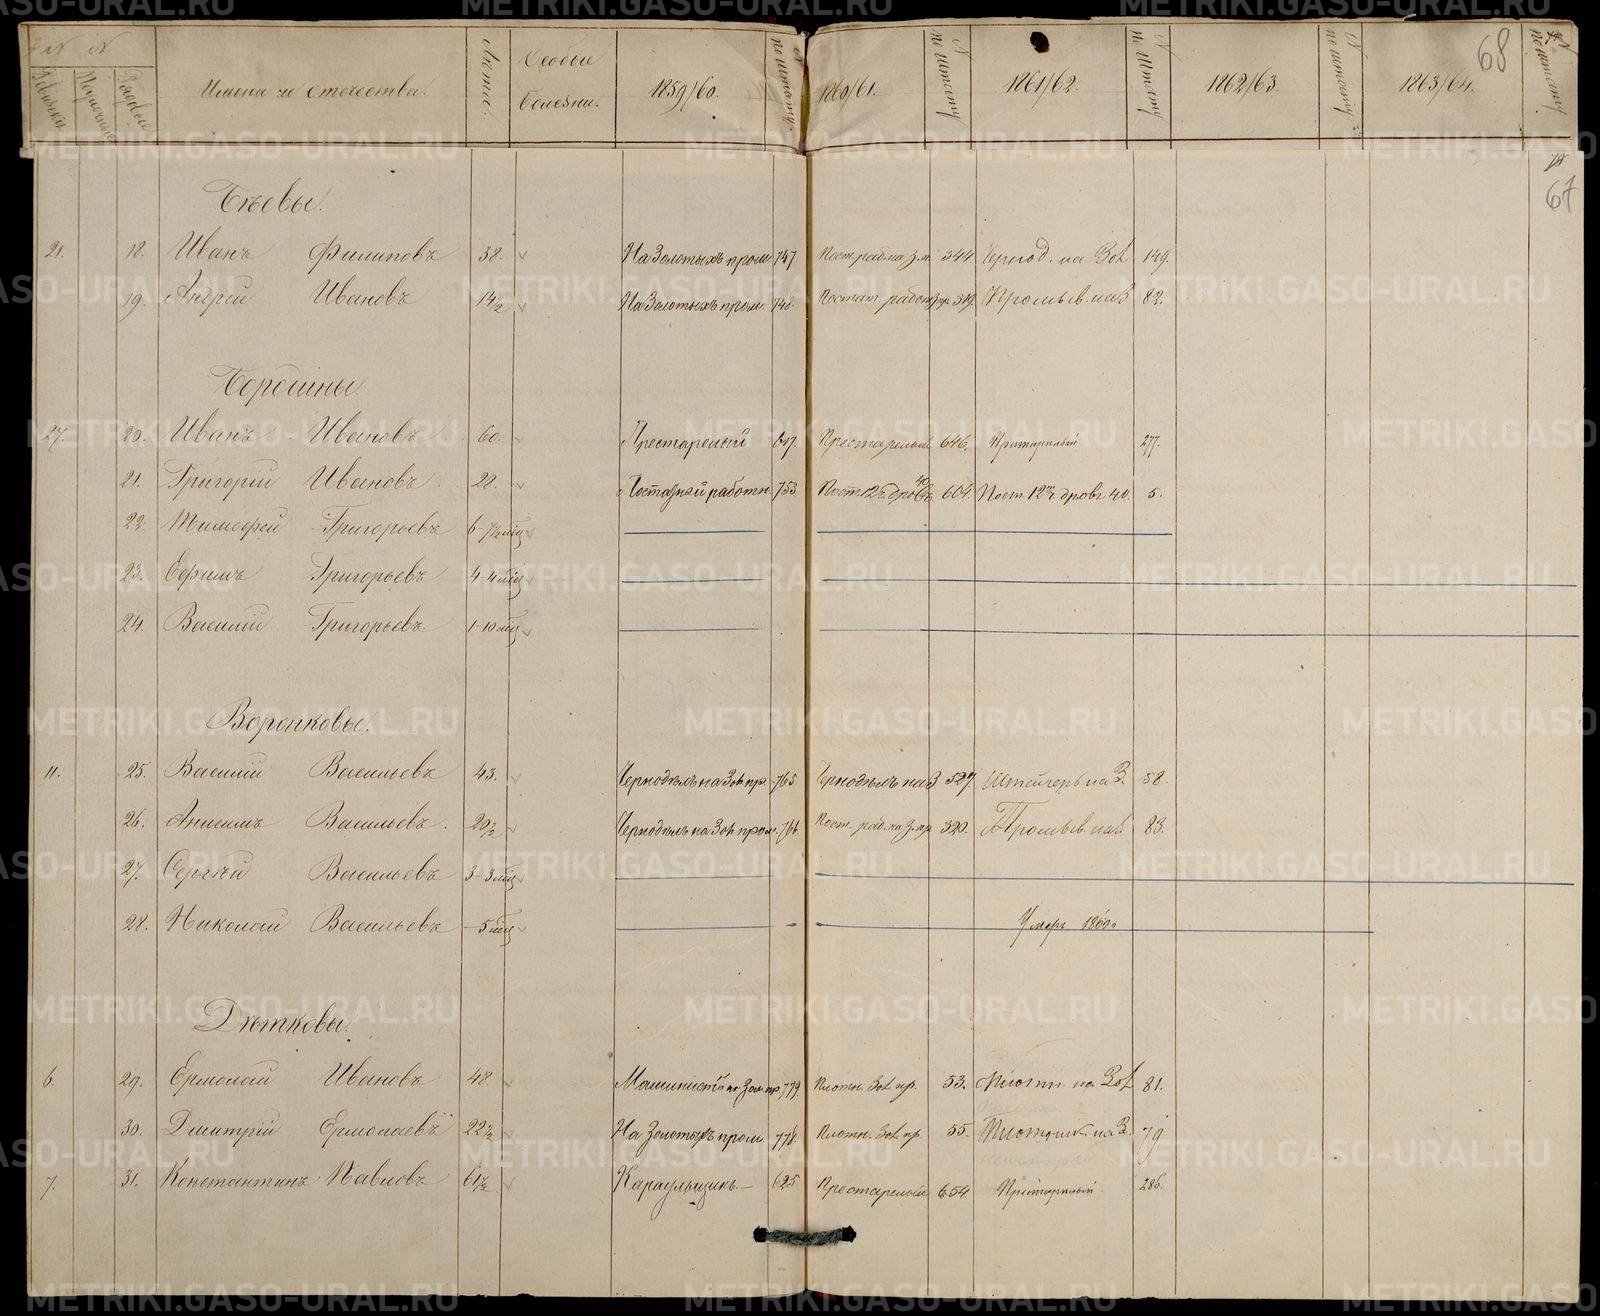 № №
Ревизски Порядочные Рядовые Имена и отчества. Лета. Особые болезни. 1859/60. № по штату. 1860/61. № по штату 1861/62. № по штату 1862/63. № по штату 1863/64. № по штату
68
67
Бѣевы.
21. 18. Иванъ Филиповъ 38. На Золотыхъ пром 747 Пост. раб. на З. п. 344 Чернод. на Зол 149.
19. Андрей Ивановъ 14½ На Золотыхъ пром. 748 Постат. работ 319. Промыв. на З. 82.
27. 20. Иванъ Ивановъ 60. Престарелый 617. Престарелый 646. Престарелый 277.
21. Григорій Ивановъ. 28. Постатный работн. 753 Пост 12 ч. дровъ 604. Пост 12 ч. дровъ 40. 5.
22. Тимофей Григорьевъ 6-7½ мѣс
23. Ефимъ Григорьевъ 4-4 мѣс
24. Василій Григорьевъ. 1-10 мѣс
Воронковы.
11. 25. Василій Васильевъ 43. Чернодѣлъ на Зол пр. 765. Чернодѣлъ на З 527. Штейгеръ на З. 58.
26. Анисимъ Васильевъ. 20½ Чернодѣлъ на Зол. пром. 766. Пост. раб. на З. пр 320. Промыв. на З. 83.
27. Сергѣй Васильевъ 3-3 мѣс
28. Николай Васильевъ -5 мѣс Умеръ 1860.
Дѣтковы.
6. 29. Ермолай Ивановъ 48 Машинистъ на Зол пр 779. Плотн. Зол. пр. 53. Плотн. на Зол 81.
30. Дмитрій Ермолаевъ 22½ На Золотыхъ пром 778. Плотн. Зол. пр. 55. Плотник. на З. 79
7. 31. Константинъ Павловъ 61½ Караульщикъ. 625 Престарелый 654. Престарелый. 286.
METRIKI.GASO-URAL.RU